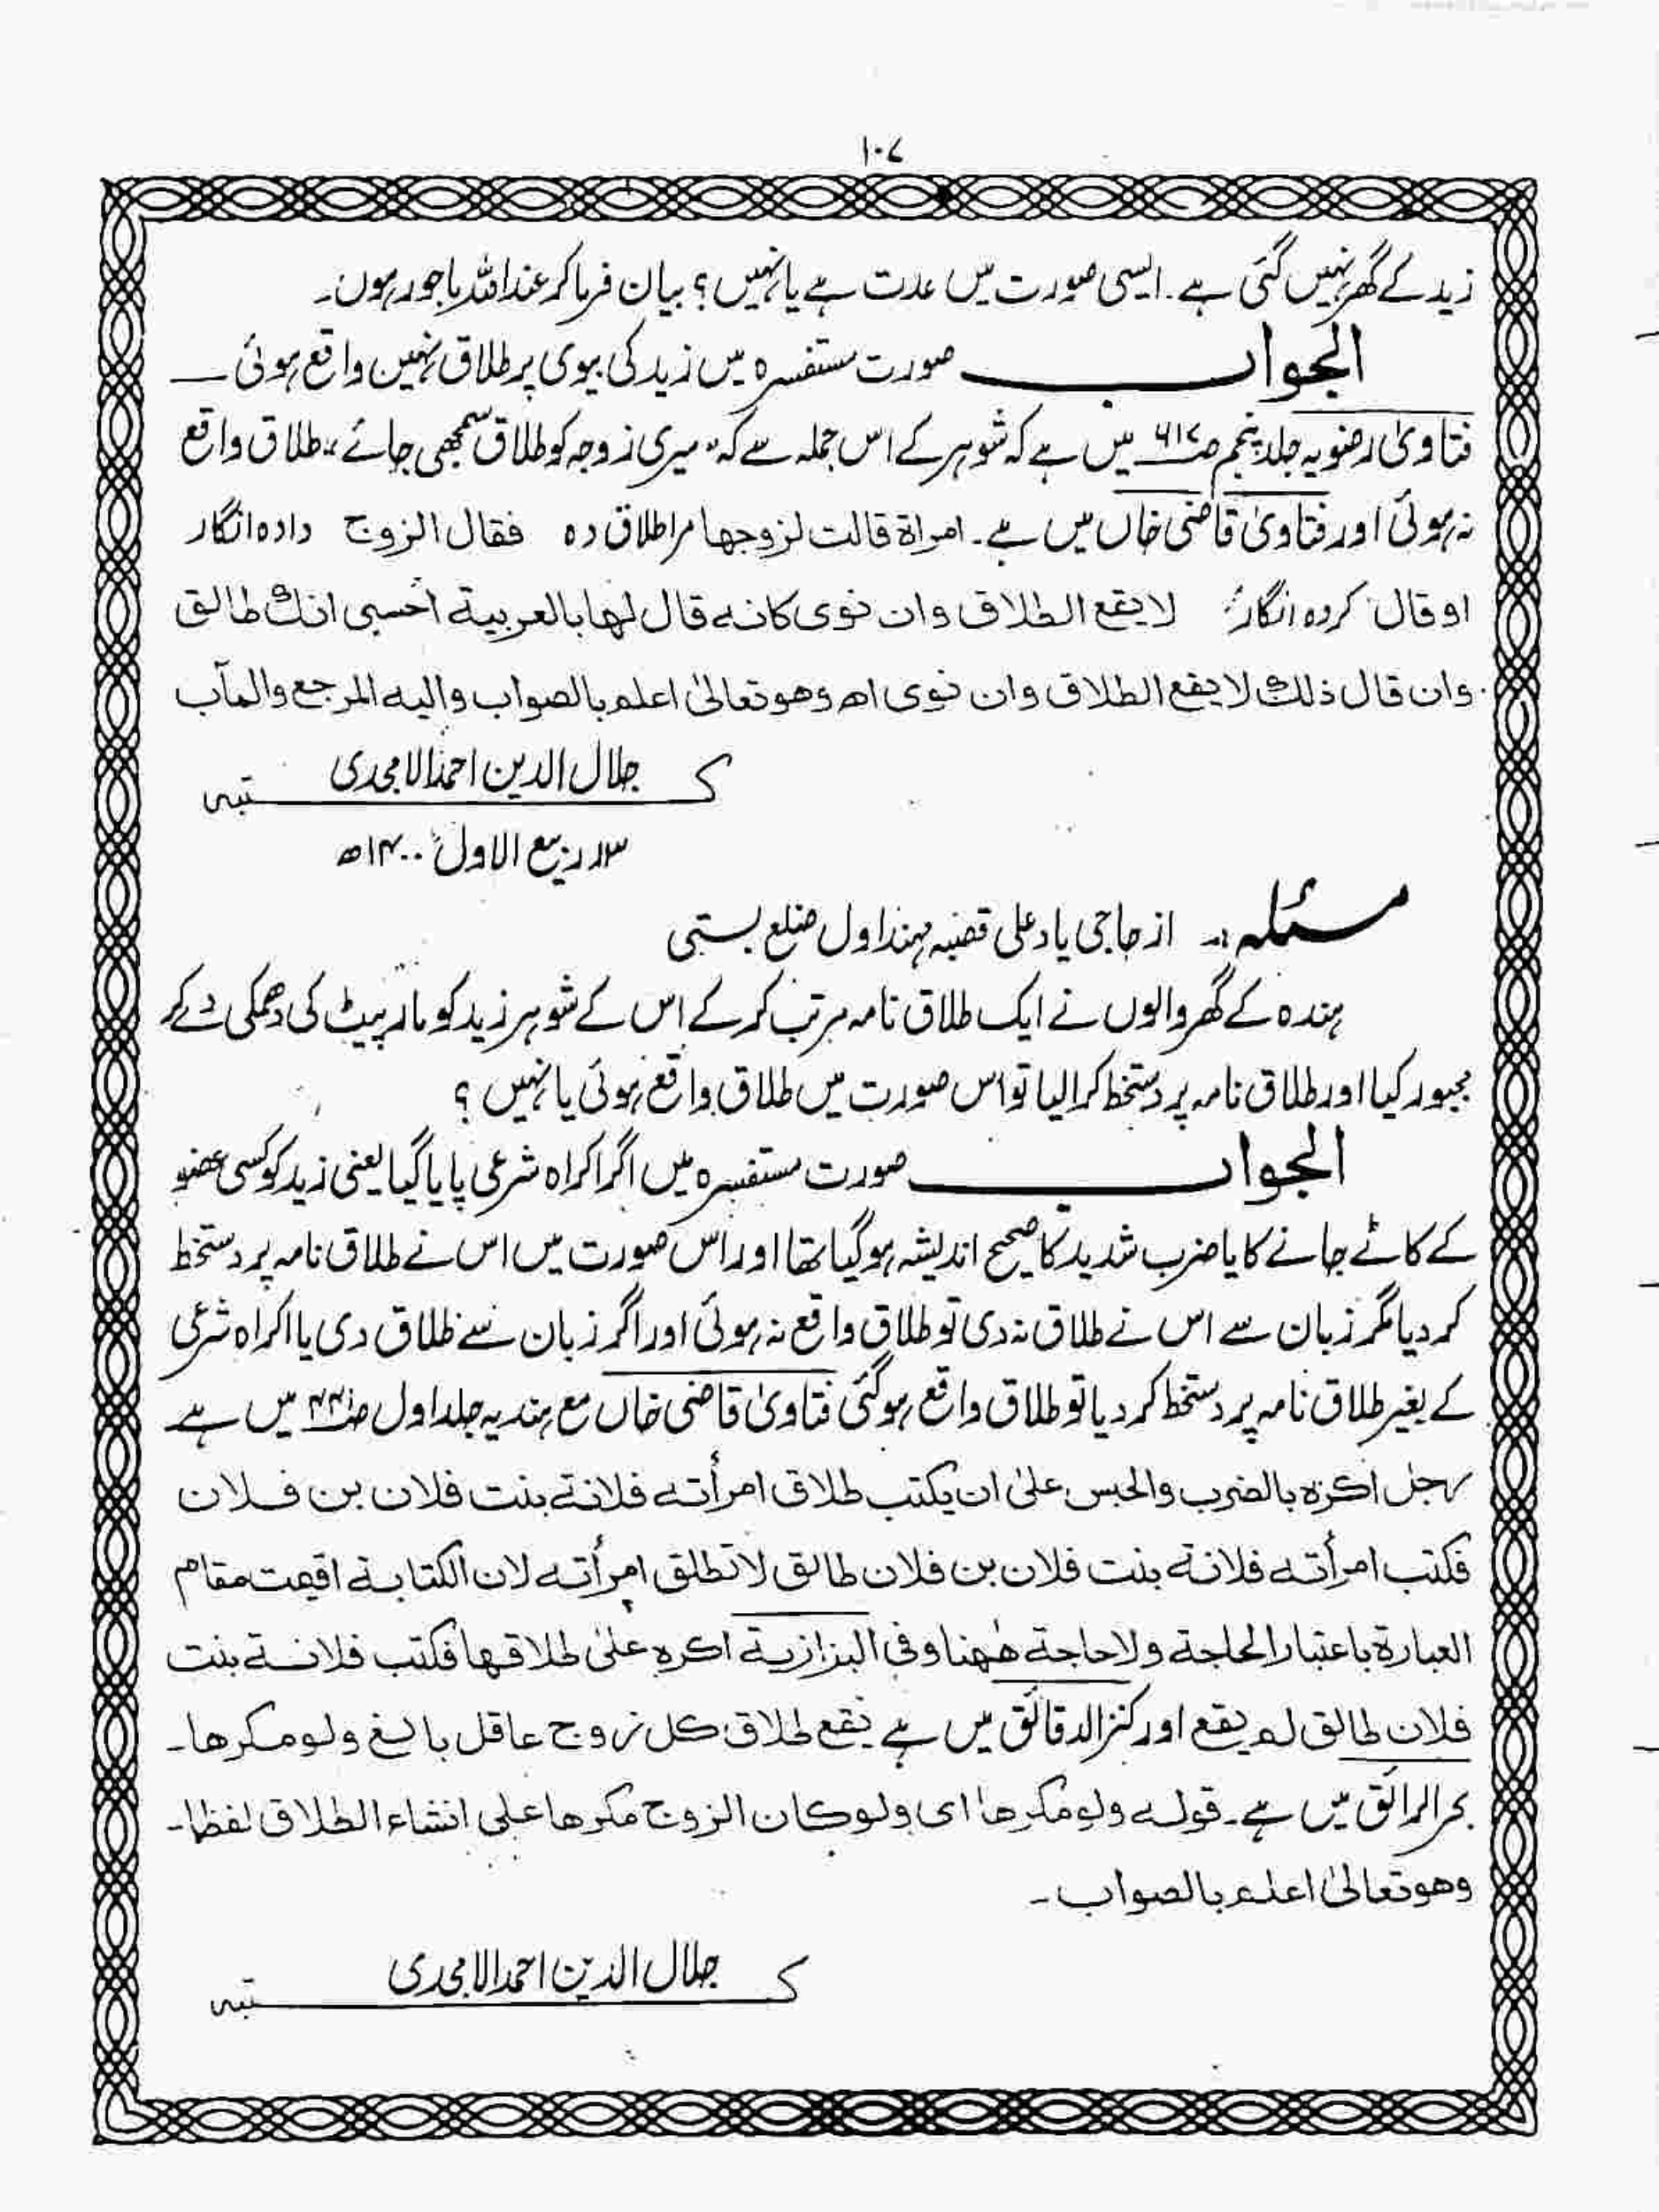 ۱۰۷
زید کے گھر نہیں گئی ہے۔ ایسی صورت میں عدت ہے یا نہیں؟ بیان فرما کر عند اللہ ماجور ہوں۔
الجواب صورت مستفسرہ میں زید کی بیوی پر طلاق نہیں واقع ہوئی
فتاویٰ رضویہ جلد پنجم ص۶۱۷ میں ہے کہ شوہر کے اس جملہ سے کہ "میری زوجہ کو طلاق سمجھی جائے" طلاق واقع
نہ ہوئی اور فتاویٰ قاضی خاں میں ہے۔ امراۃ قالت لزوجھا مرا طلاق دہ فقال الزوج دادہ انگار
او قال کردہ انگار لا یقع الطلاق وان نوی کانہ قال لھا بالعربیۃ احسبی انك طالق
وان قال ذلك لا یقع الطلاق وان نوی اھ وھو تعالیٰ اعلم بالصواب والیہ المرجع والمآب
کتبہ جلال الدین احمد الامجدی
۱۳ ربیع الاول ۱۴۰۰ھ
مسئلہ:۔ از حاجی یاد علی قصبہ مہنداول ضلع بستی
ہندہ کے گھر والوں نے ایک طلاق نامہ مرتب کر کے اس کے شوہر زید کو مار پیٹ کی دھمکی دے کر
مجبور کیا اور طلاق نامہ پر دستخط کرا لیا تو اس صورت میں طلاق واقع ہوئی یا نہیں؟
الجواب صورت مستفسرہ میں اگر اکراہ شرعی پایا گیا یعنی زید کو کسی عضو
کے کاٹے جانے کا یا ضرب شدید کا صحیح اندیشہ ہو گیا تھا اور اس صورت میں اس نے طلاق نامہ پر دستخط
کر دیا مگر زبان سے اس نے طلاق نہ دی تو طلاق واقع نہ ہوئی اور اگر زبان سے طلاق دی یا اکراہ شرعی
کے بغیر طلاق نامہ پر دستخط کر دیا تو طلاق واقع ہو گئی فتاویٰ قاضی خاں مع ہندیہ جلد اول میں ہے
رجل اکرہ بالضرب والحبس علیٰ ان یکتب طلاق امرأتہ فلانۃ بنت فلان بن فلان
فکتب امرأتہ فلانۃ بنت فلان بن فلان طالق لا تطلق امرأتہ لان الکتابۃ اقیمت مقام
العبارۃ باعتبار الحاجۃ ولا حاجۃ ھٰھنا وفی البزازیۃ اکرہ علیٰ طلاقھا فکتب فلانۃ بنت
فلان طالق لم یقع اور کنز الدقائق میں ہے یقع طلاق کل زوج عاقل بالغ ولو مکرھا۔
بحر الرائق میں ہے۔ قولہ ولو مکرھا ای ولو کان الزوج مکرھا علی انشاء الطلاق لفظا۔
وھو تعالیٰ اعلم بالصواب۔
کتبہ جلال الدین احمد الامجدی